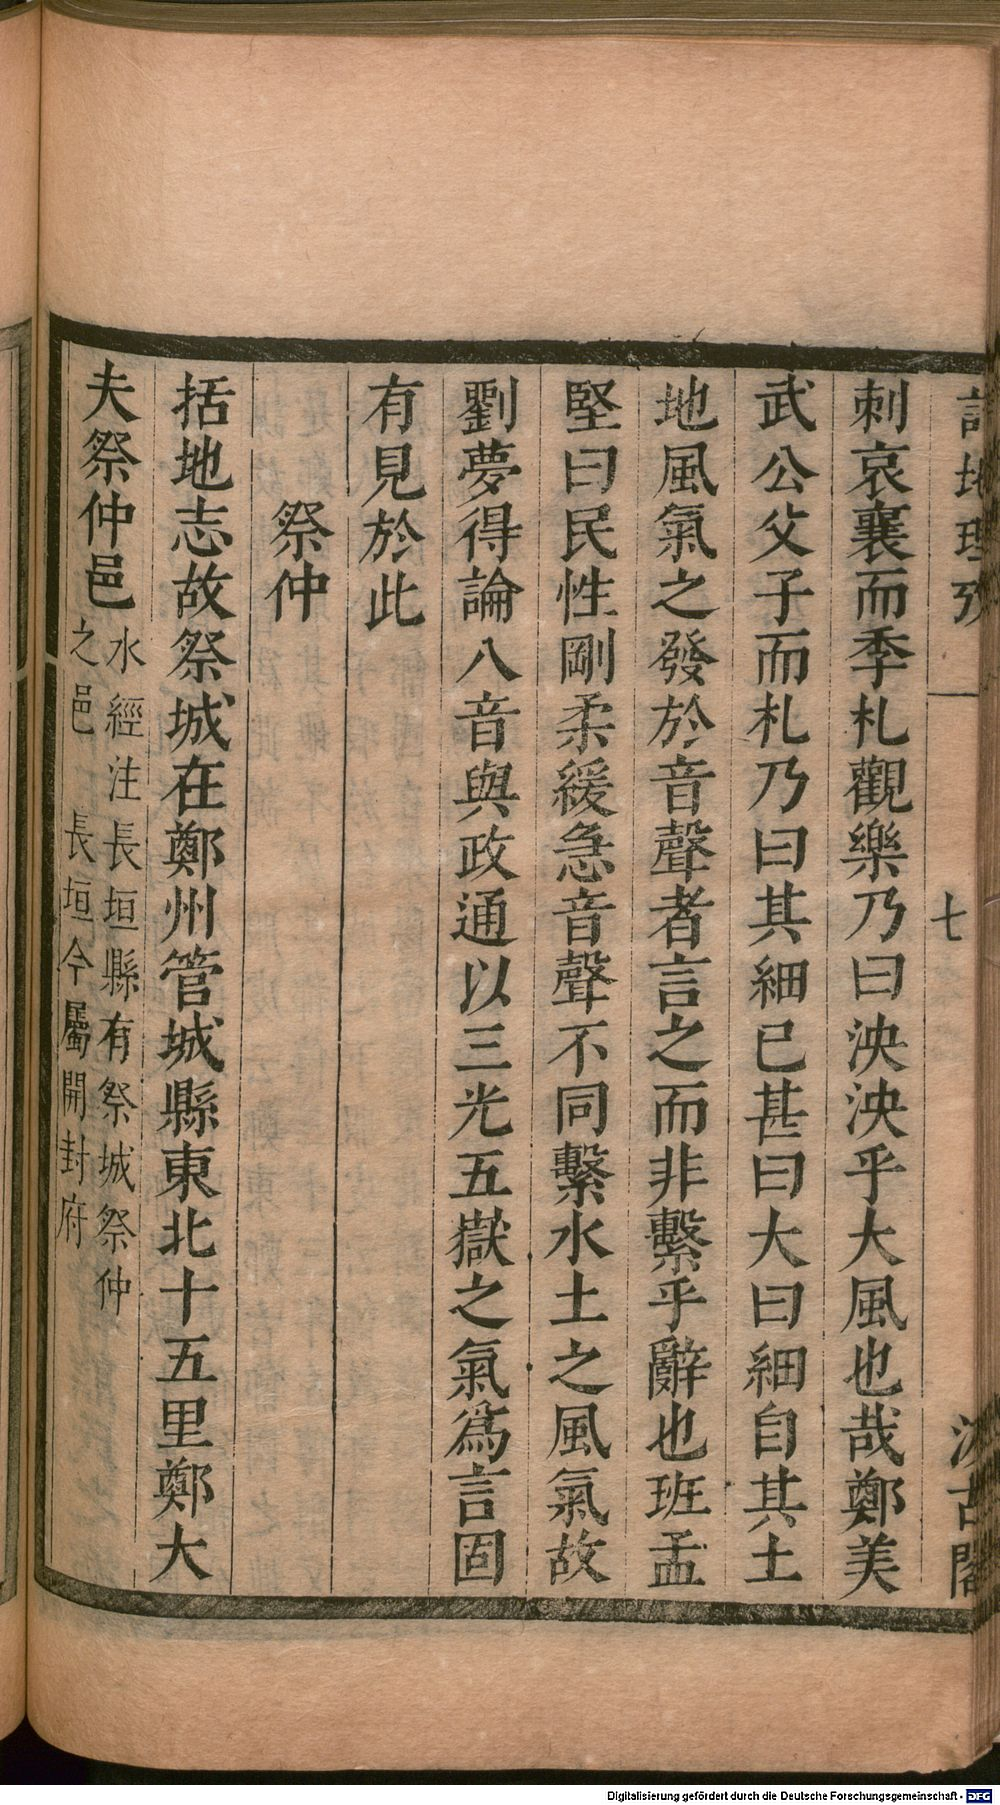 詩地理攷
七
汲古閣
刺哀襄而季札觀樂乃曰泱泱乎大風也哉鄭美
武公父子而札乃曰其細已甚曰大曰細自其土
地風氣之發於音聲者言之而非繫乎辭也班孟
堅曰民性剛柔緩急音聲不同繫水土之風氣故
劉夢得論八音與政通以三光五嶽之氣爲言固
有見於此
祭仲
括地志故祭城在鄭州管城縣東北十五里鄭大
夫祭仲邑
水經注長垣縣有祭城祭仲
之邑 長垣今屬開封府
Digitalisierung gefördert durch die Deutsche Forschungsgemeinschaft - DFG